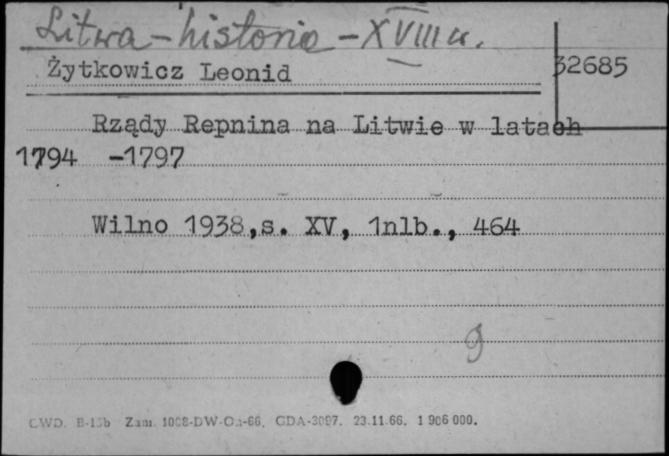 Litwa - historia - XVIII w.
Żytkowicz Leonid 32685
Rządy Repnina na Litwie w latach
1794 -1797
Wilno 1938,s. XV, 1nlb., 464
9
CWD. B-15b Zam. 1008-DW-Gd-66. GDA-3097. 23.11.66. 1 906 000.